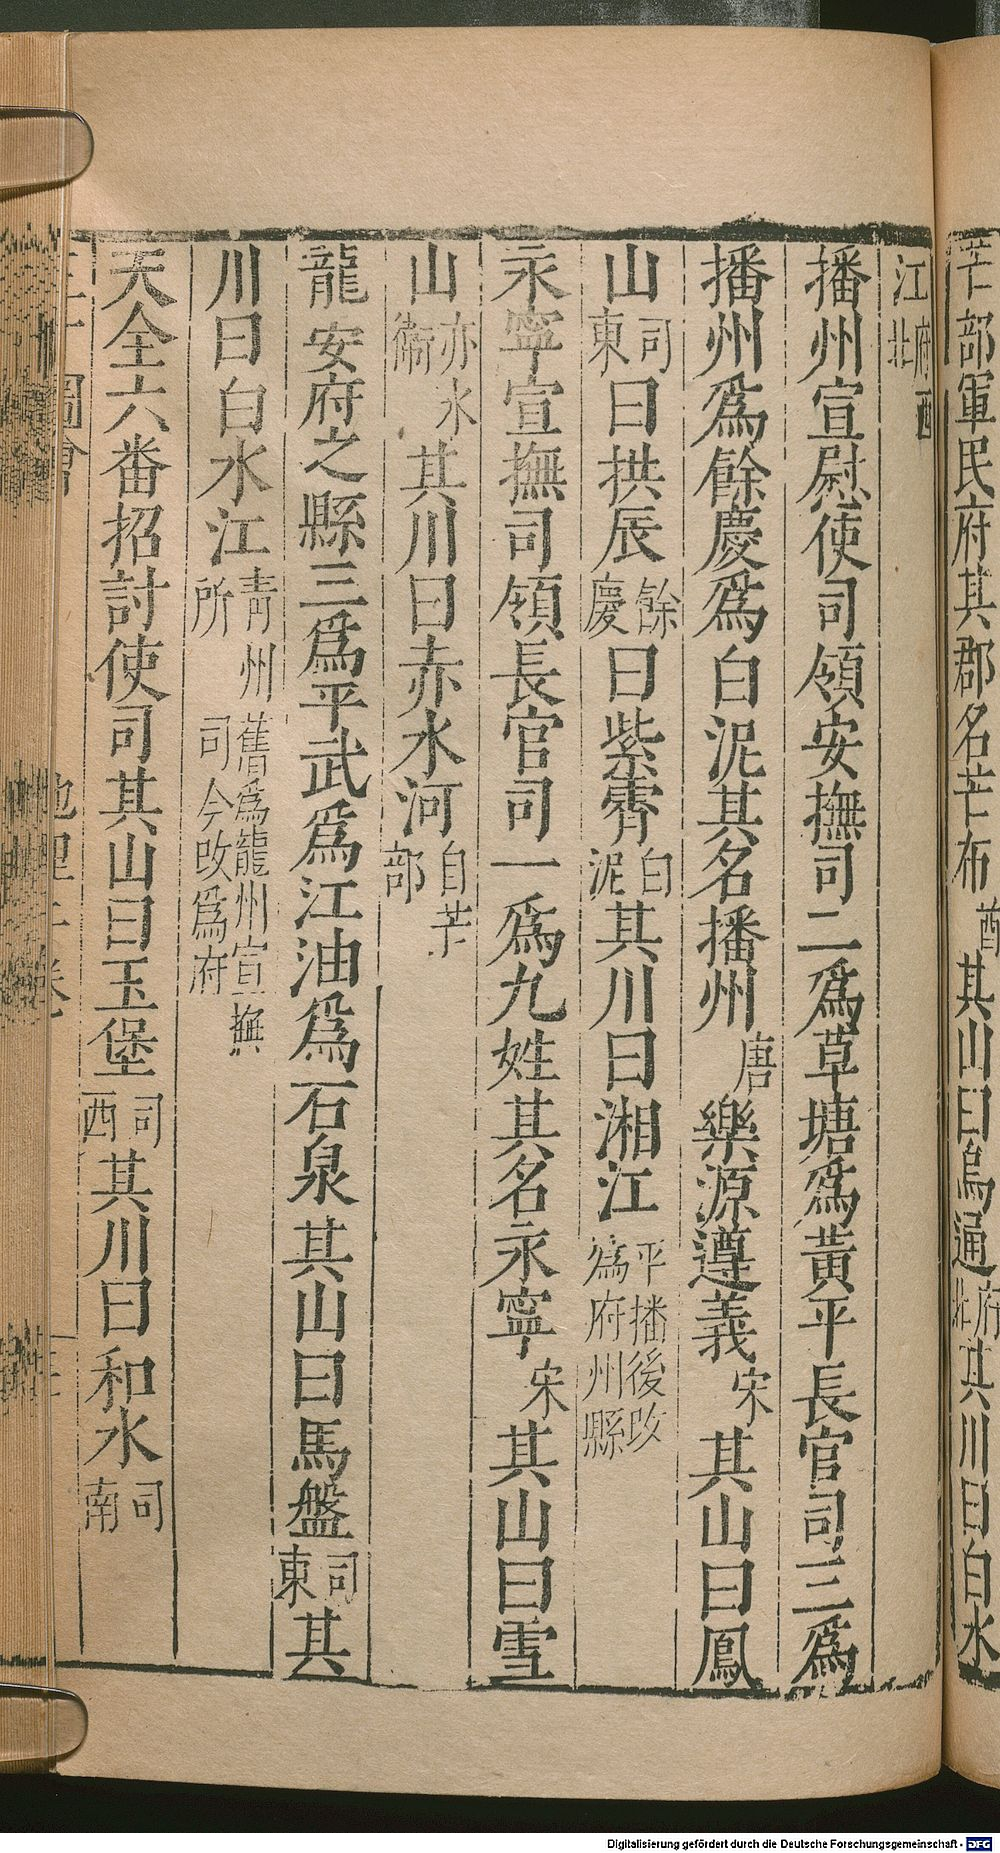 芒部軍民府其郡名芒布酋其山曰烏通府北其川曰白水
江府西北
播州宣慰使司領安撫司二爲草塘爲黃平長官司三爲
播州爲餘慶爲白泥其名播州唐樂源遵義宋其山曰鳳
山司東曰拱辰餘慶曰紫霄白泥其川曰湘江平播後改爲府州縣
永寧宣撫司領長官司一爲九姓其名永寧宋其山曰雪
山亦水衛其川曰赤水河自芒部
龍安府之縣三爲平武爲江油爲石泉其山曰馬盤司東其
川曰白水江青州所舊爲龍州宣撫司今改爲府
天全六番招討使司其山曰玉堡司西其川曰和水司南
圖會 地理
Digitalisierung gefördert durch die Deutsche Forschungsgemeinschaft - DFG